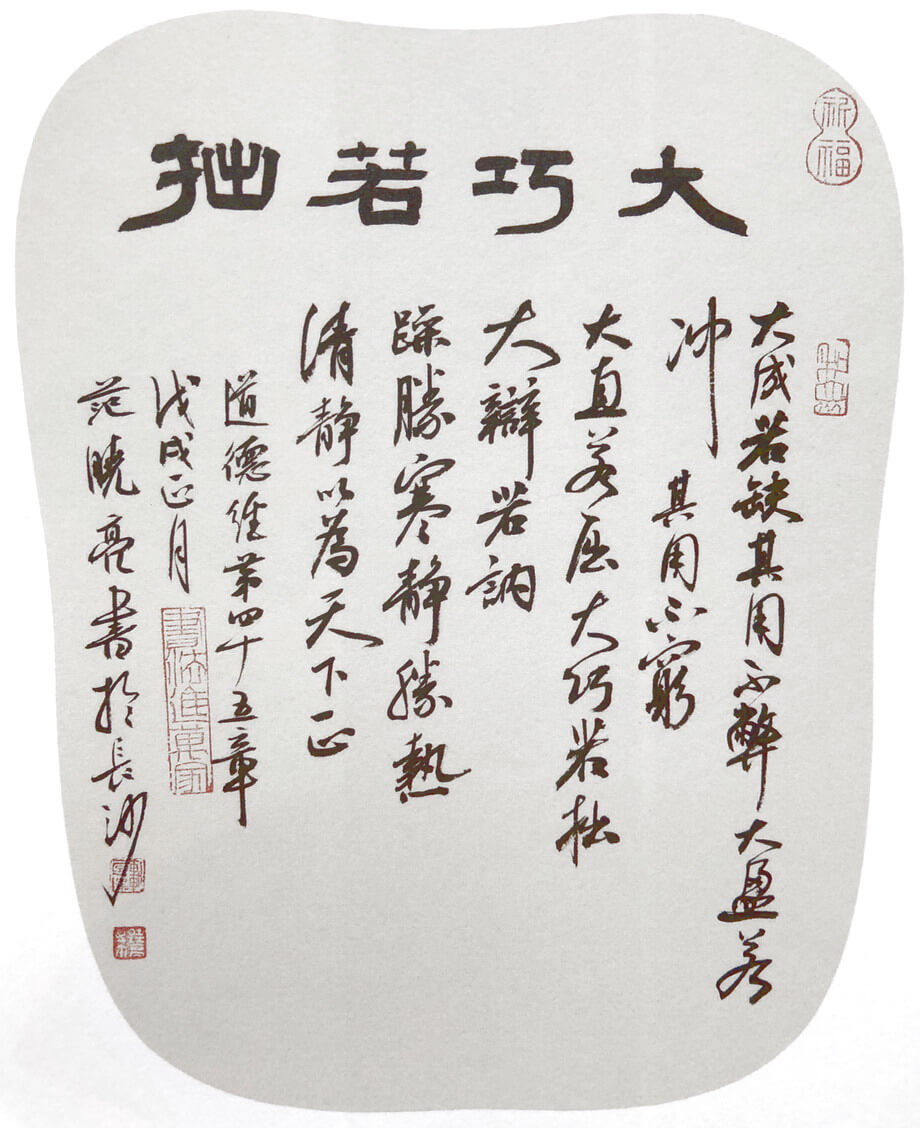 大巧若拙
祈福
大成若缺其用不弊大盈若
冲 其用不窮
大直若屈大巧若拙
大辯若訥
躁勝寒静勝熱
清静以為天下正
道德經第四十五章
戊戌正月
范曉亮書於長沙